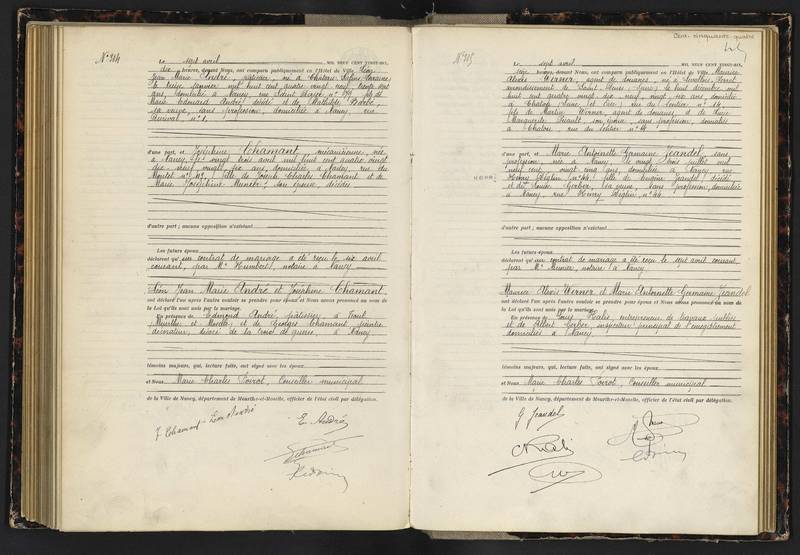 N° 214
Le sept avril MIL NEUF CENT VINGT-SIX,
dix heures, devant Nous, ont comparu publiquement en l'Hôtel de Ville Léon
Jean Marie André, pâtissier, né à Château-Salins, Lorraine
le treize janvier mil huit cent quatre vingt neuf, trente sept
ans, domicilié à Nancy, rue Saint Dizier n°
Marie Edouard André décédé et de Mathilde
sa veuve, sans profession, domiciliée à Nancy, rue
n° 1,
d'une part, et Joséphine Chamant, mécanicienne, née
à Nancy, le vingt trois avril mil huit cent quatre vingt
dix neuf, vingt six ans, domiciliée à Nancy, rue du
Montet n° fille de Joseph Charles Chamant et de
Marie Joséphine Munier, son épouse, décédés
d'autre part ; aucune opposition n'existant
Les futurs époux
déclarent qu'un contrat de mariage a été reçu le six avril
courant, par Me Humbert, notaire à Nancy
Léon Jean Marie André et Joséphine Chamant
ont déclaré l'un après l'autre vouloir se prendre pour époux et Nous avons prononcé au nom de
la Loi qu'ils sont unis par le mariage.
En présence de Edmond André, pâtissier, à Toul
Meurthe et Moselle et de Georges Chamant, peintre
décorateur, décoré de la Croix de guerre, à Nancy
témoins majeurs, qui, lecture faite, ont signé avec les époux
et Nous Marie Charles Poirot, Conseiller municipal
de la Ville de Nancy, département de Meurthe-et-Moselle, officier de l'état civil par délégation.
J. Chamant Léon André
E. André
Chamant
Cent cinquante quatre
N° 215
Le sept avril MIL NEUF CENT VINGT-SIX,
heures, devant Nous, ont comparu publiquement en l'Hôtel de Ville Maurice
Alexis Werner, agent de douanes, né à Levallois Perret
arrondissement de Saint Denis (Seine), le huit décembre mil
huit cent quatre vingt dix neuf, vingt six ans, domicilié
à Chalon (Saône et Loire) rue du n° 14,
fils de Martin Werner, agent de douanes, et de
Marguerite son épouse, sans profession, domiciliés
à Chalon, rue du n° 14
d'une part, et Marie Antoinette Germaine Jeandel, sans
profession, née à Nancy, le vingt trois juillet mil
neuf cent, vingt cinq ans, domiciliée à Nancy rue
Henry Déglin, n° 44, fille de Eugène Jeandel décédé
et de Gerber, sa veuve, sans profession, domiciliée
à Nancy, rue Henry Déglin, n° 44.
d'autre part ; aucune opposition n'existant
Les futurs époux
déclarent qu'un contrat de mariage a été reçu le sept avril courant,
par Me Meunier, notaire à Nancy.
Maurice Alexis Werner et Marie Antoinette Germaine Jeandel
ont déclaré l'un après l'autre vouloir se prendre pour époux et Nous avons prononcé au nom de
la Loi qu'ils sont unis par le mariage.
En présence de Louis entrepreneur de travaux publics
et de Albert Gerber, inspecteur principal de l'enregistrement
domiciliés à Nancy.
témoins majeurs, qui, lecture faite, ont signé avec les époux
et Nous Marie Charles Poirot, Conseiller municipal
de la Ville de Nancy, département de Meurthe-et-Moselle, officier de l'état civil par délégation.
G Jeandel